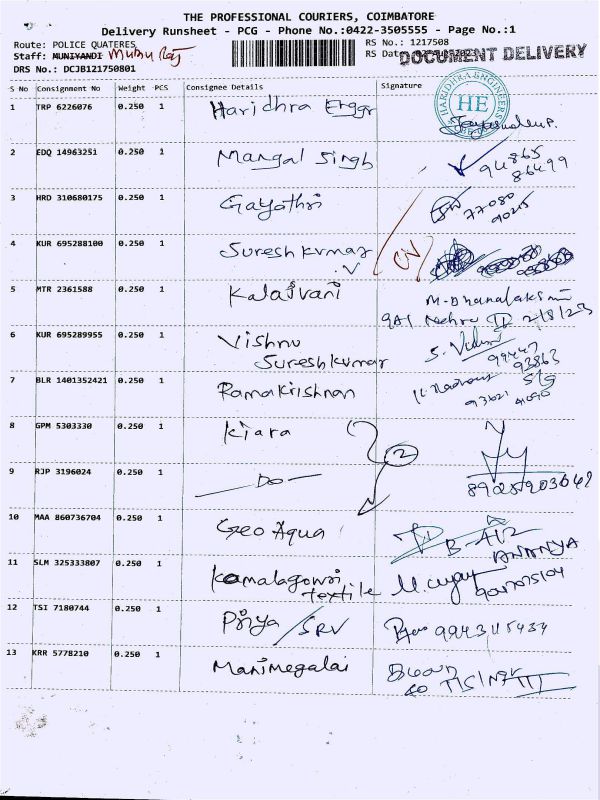 THE PROFESSIONAL COURIERS, COIMBATORE
Delivery Runsheet - PCG - Phone No.:0422-3505555 - Page No.:1
Route: POLICE QUATERES
RS No.: 1217508
Staff: MUNIYANDI
RS Date
DOCUMENT DELIVERY
DRS No.: DCJB121750801
S No Consignment No Weight PCS Consignee Details Signature
HARIDHRA ENGINEERS
HE
1 TRP 6226076 0.250 1 Haridhra Enggr
2 EDQ 14963251 0.250 1 Mangal Singh
94865
86499
3 HRD 310680175 0.250 1 Gayathri
77080
4 KUR 695288100 0.250 1 Suresh kumar
5 MTR 2361588 0.250 1 Kalaivani
M. Dhanalakshmi
2/8/23
6 KUR 695289955 0.250 1 Vishnu
Sureshkumar
7 BLR 1401352421 0.250 1 Ramakrishnan
8 GPM 5303330 0.250 1 Kiara
2
9 RJP 3196024 0.250 1 Do
10 MAA 860736704 0.250 1 Geo Aqua
B-A12
ANANYA
11 SLM 325333807 0.250 1 Kamalagowri
textile
12 TSI 7180744 0.250 1 Priya / SRV
13 KRR 5778210 0.250 1 Manimegalai